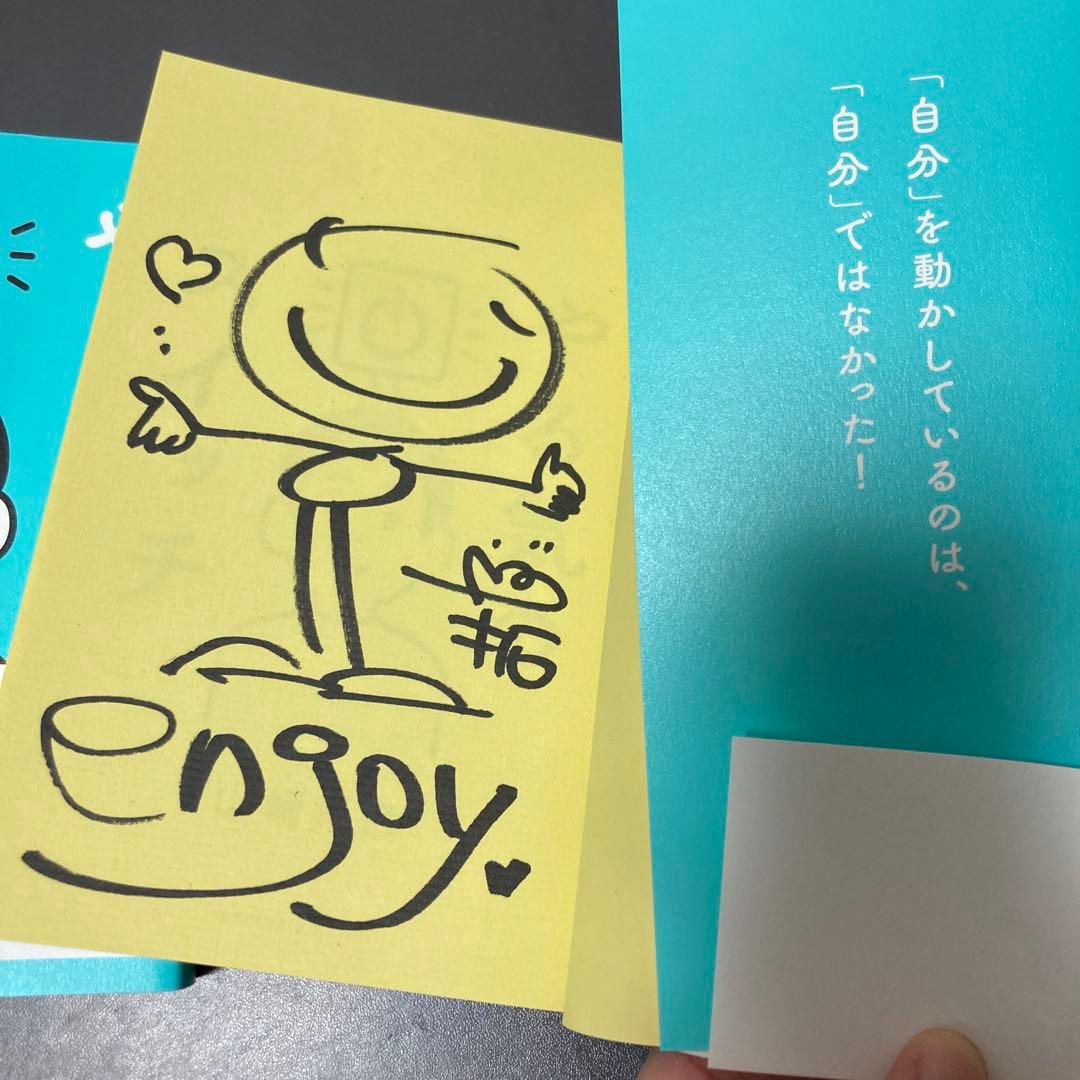 「自分」を動かしているのは、
「自分」ではなかった！
enjoy